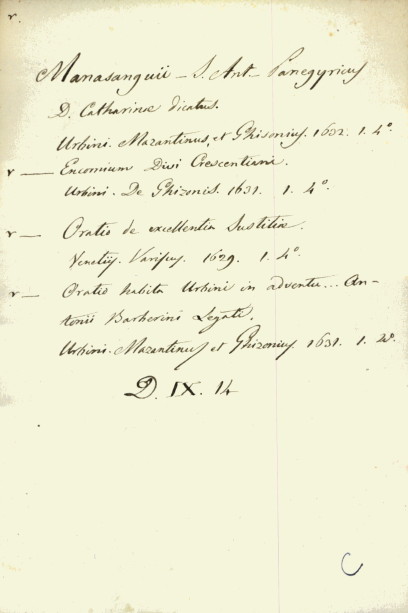 r.
Manasanguii - S. Ant. Panegyricus
D. Catharinæ dicatus.
Urbini. Mazantinus, et Ghisonius. 1632. 1. 4°.
r — Encomium Divi Crescentiani.
Urbini. De Ghizonis. 1631. 1. 4°.
r — Oratio de excellentia Iustitiæ.
Venetijs. Varisius. 1629. 1. 4°.
r — Oratio habita Urbini in adventu... An-
tonii Barberini Legati.
Urbini. Mazantinus et Ghizonius 1631. 1. 4°.
D. IX. 14
C